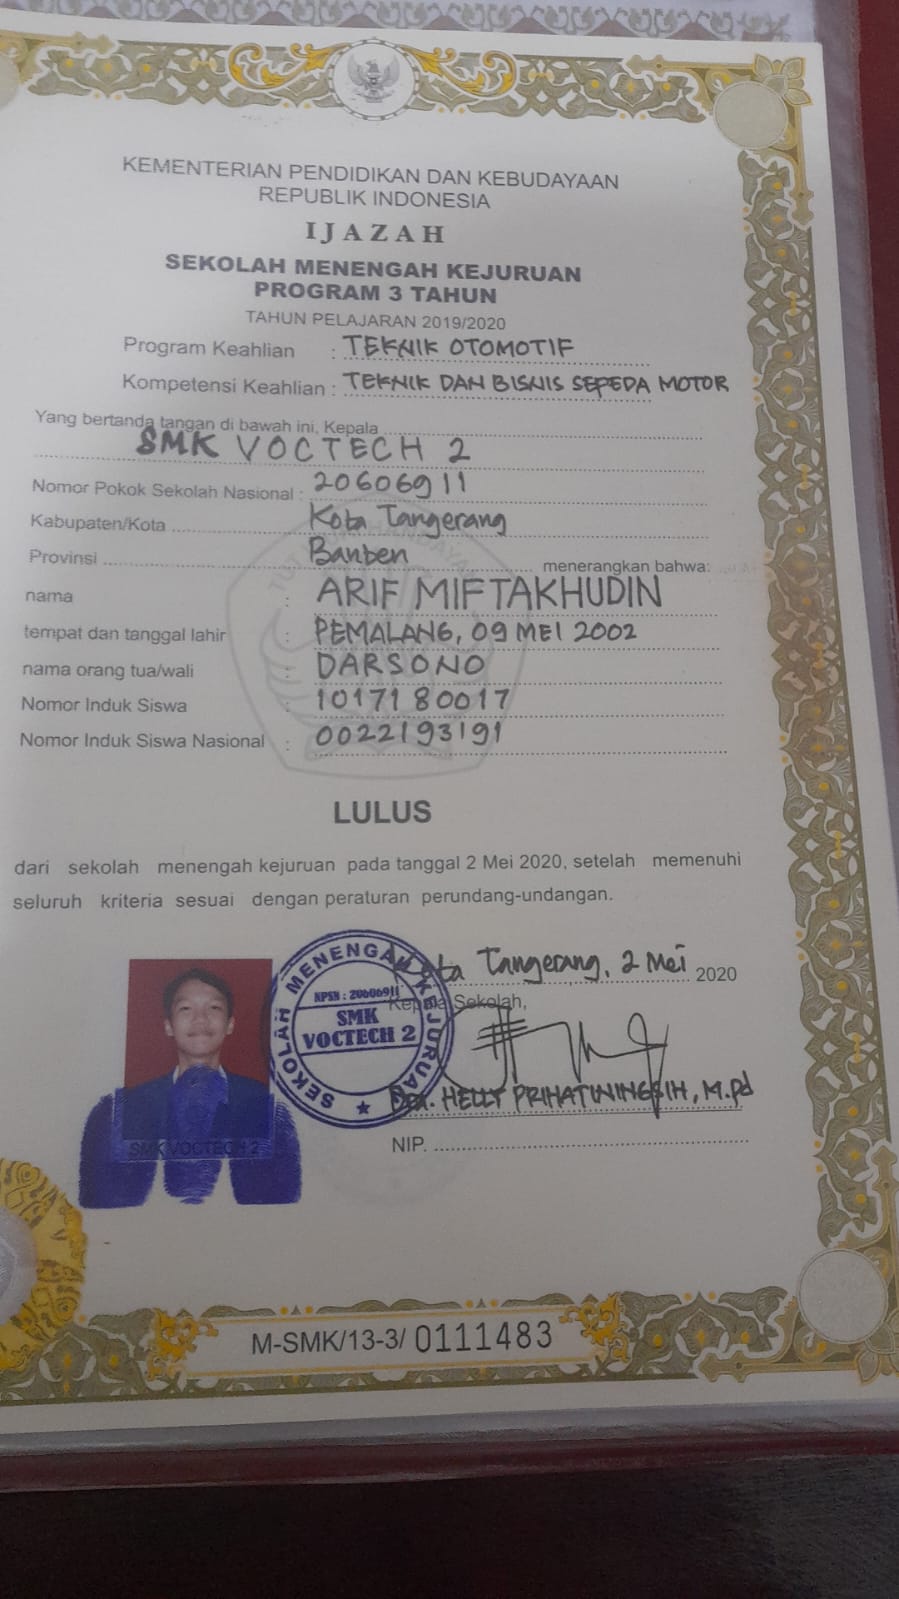 KEMENTERIAN PENDIDIKAN DAN KEBUDAYAAN
REPUBLIK INDONESIA
IJAZAH
SEKOLAH MENENGAH KEJURUAN
PROGRAM 3 TAHUN
TAHUN PELAJARAN 2019/2020
Program Keahlian : TEKNIK OTOMOTIF
Kompetensi Keahlian : TEKNIK DAN BISNIS SEPEDA MOTOR
Yang bertanda tangan di bawah ini, Kepala
SMK VOCTECH 2
Nomor Pokok Sekolah Nasional : 20606911
Kabupaten/Kota Kota Tangerang
Provinsi Banten menerangkan bahwa:
nama : ARIF MIFTAKHUDIN
tempat dan tanggal lahir : PEMALANG, 09 MEI 2002
nama orang tua/wali : DARSONO
Nomor Induk Siswa : 1017180017
Nomor Induk Siswa Nasional : 0022193191
LULUS
dari sekolah menengah kejuruan pada tanggal 2 Mei 2020, setelah memenuhi
seluruh kriteria sesuai dengan peraturan perundang-undangan.
Kota Tangerang, 2 Mei 2020
Kepala Sekolah,
SEKOLAH MENENGAH KEJURUAN
NPSN : 20606911
SMK
VOCTECH 2
HELLY PRIHATININGSIH, M.Pd
SMK VOCTECH 2
NIP.
M-SMK/13-3/ 0111483